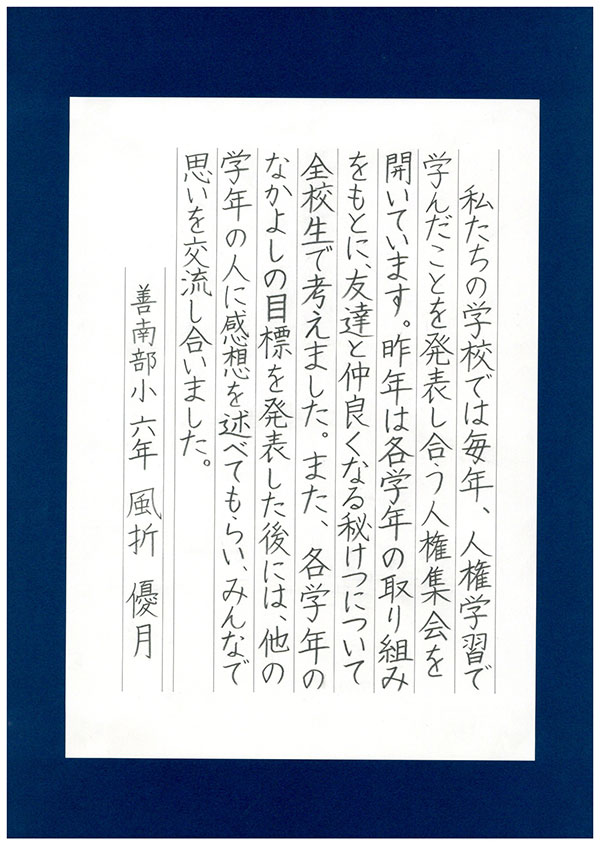 私たちの学校では毎年、人権学習で
学んだことを発表し合う人権集会を
開いています。昨年は各学年の取り組み
をもとに、友達と仲良くなる秘けつについて
全校生で考えました。また、各学年の
なかよしの目標を発表した後には、他の
学年の人に感想を述べてもらい、みんなで
思いを交流し合いました。
善南部小 六年 風折 優月